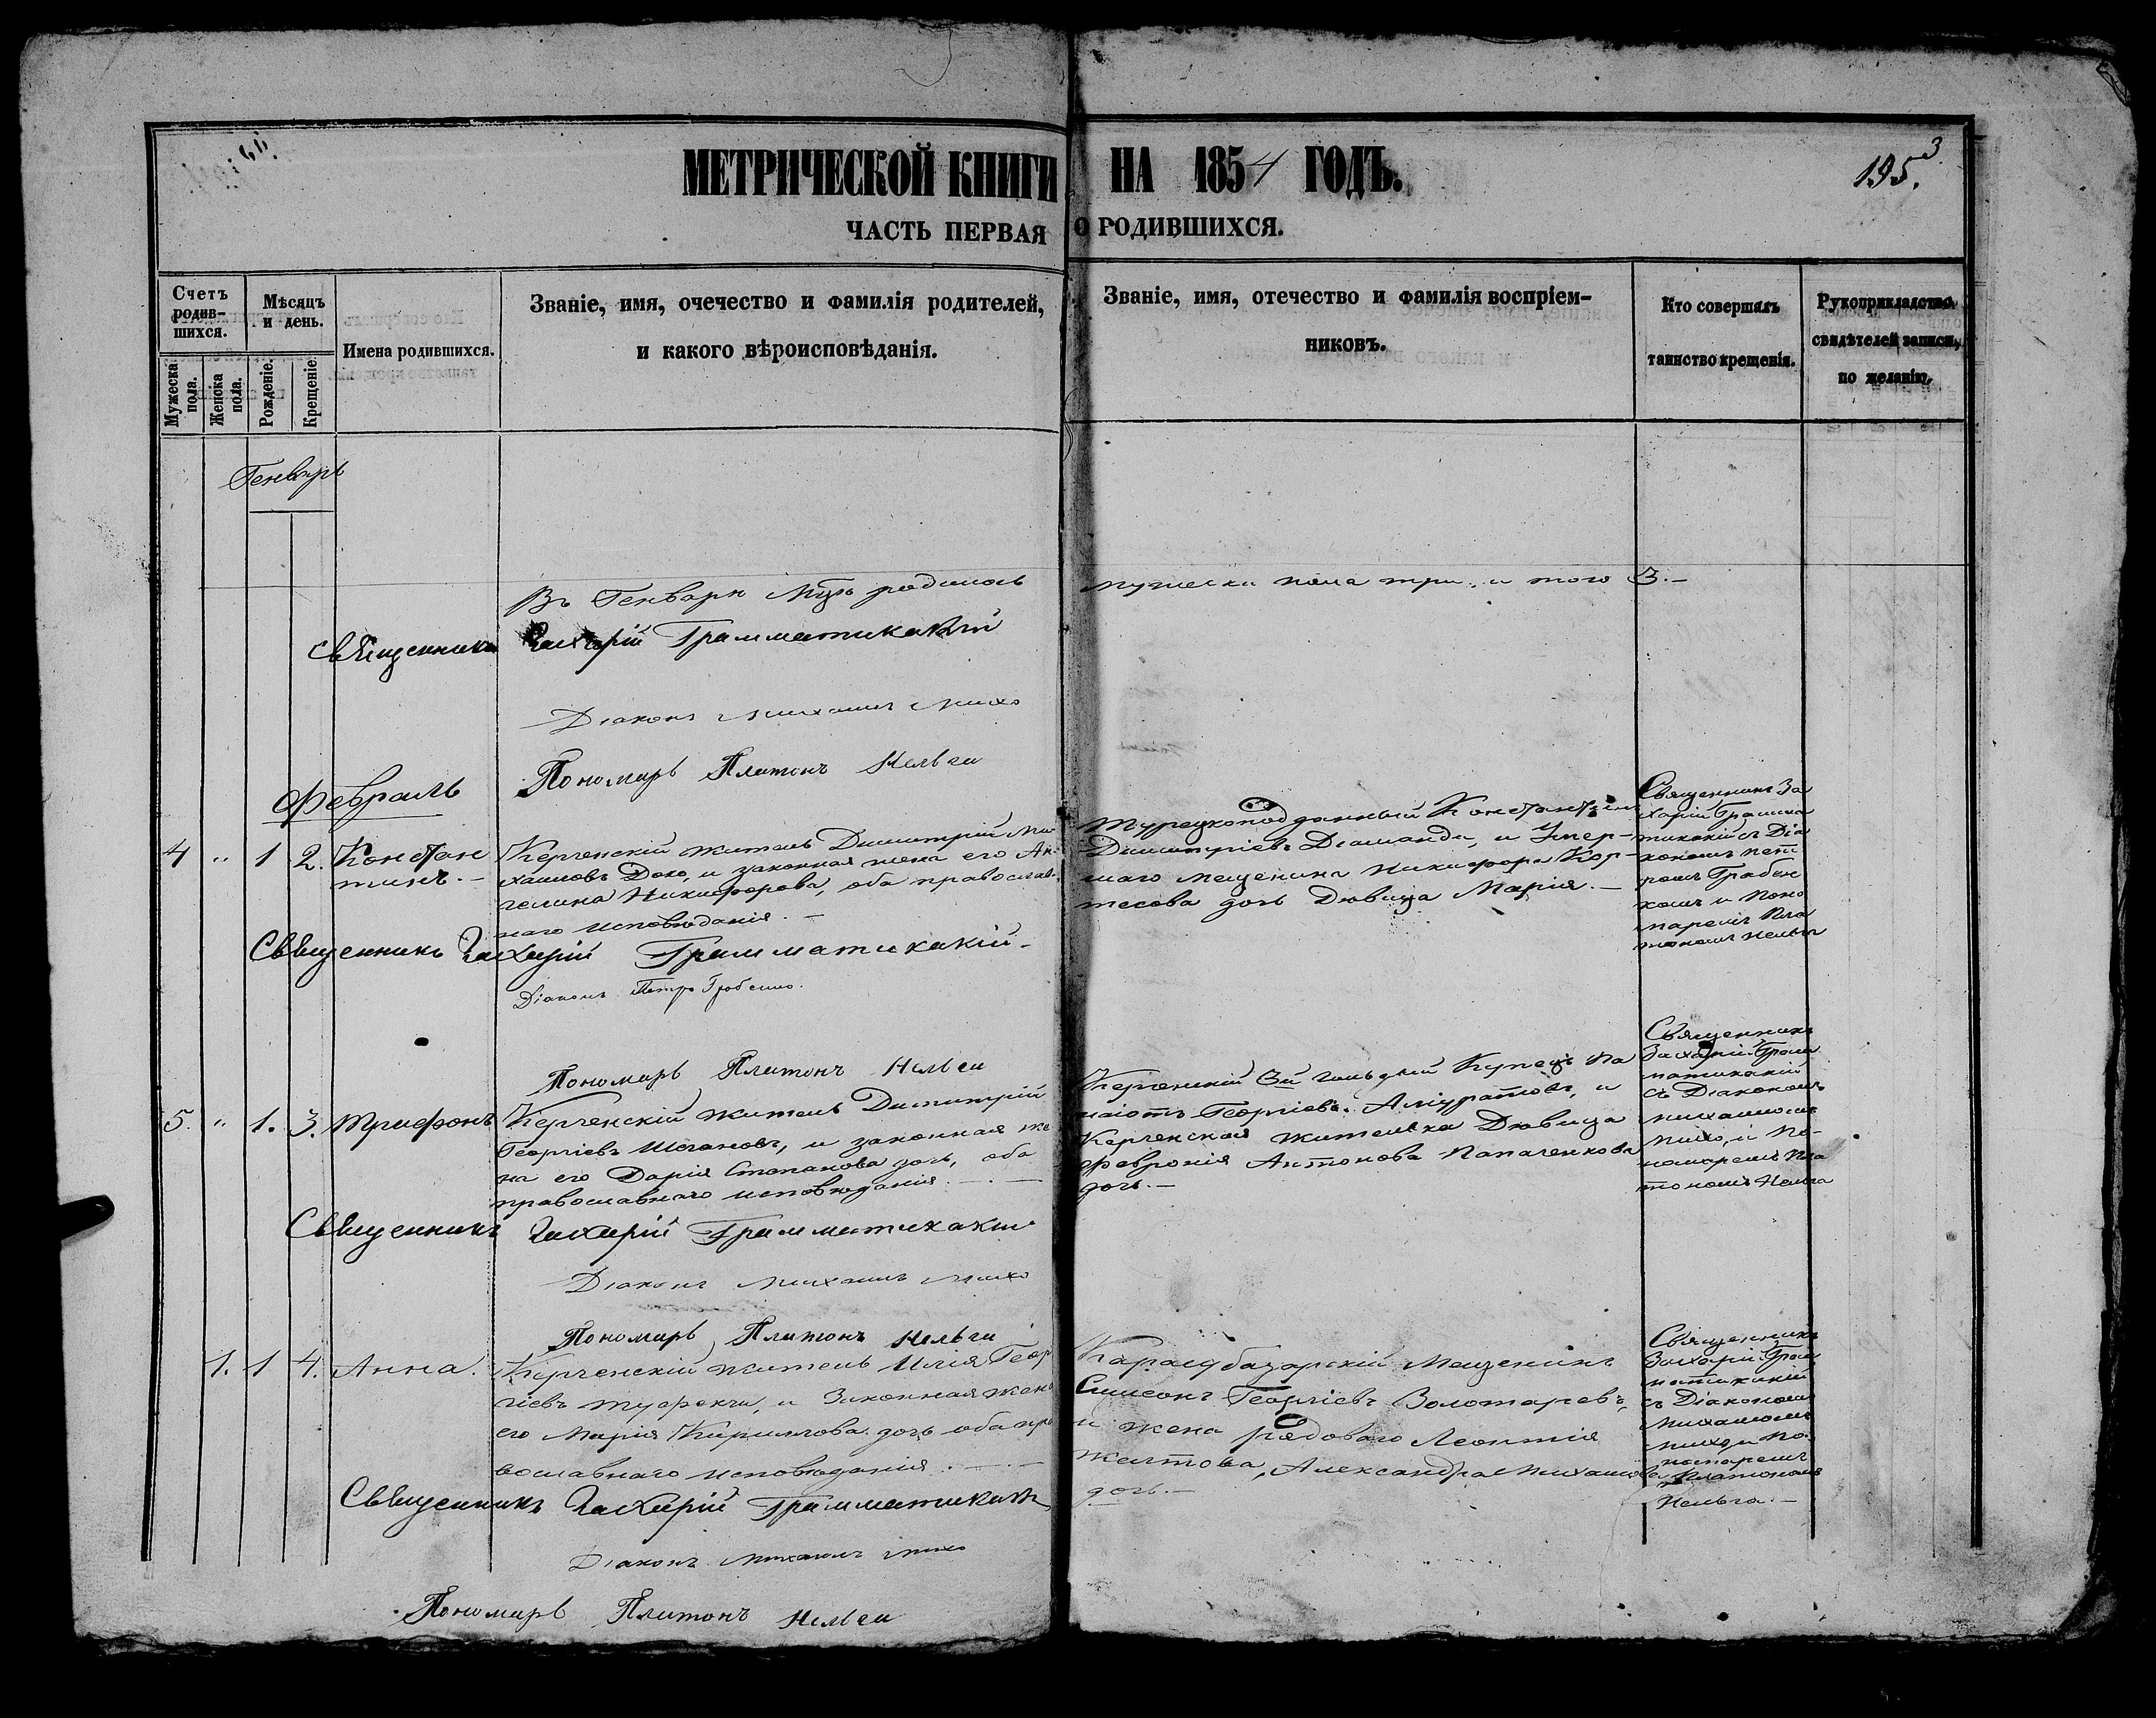 МЕТРИЧЕСКОЙ КНИГИ НА 1854 ГОДЪ.
195.
3
ЧАСТЬ ПЕРВАЯ О РОДИВШИХСЯ.
Счетъ родив-шихся.
Мужеска пола.
Женска пола.
Мѣсяцъ и день.
Рожденіе.
Крещеніе.
Имена родившихся.
Званіе, имя, очечество и фамилія родителей,
и какого вѣроисповѣданія.
Званіе, имя, отечество и фамилія воспріем-
никовъ.
Кто совершалъ
таинство крещенія.
Рукоприкладство
свидѣтелей записи,
по желанію.
Генварь
Въ Генваря родилось
мужеска пола три, и того 3.-
Священникъ Захарій Грамматикакій
Діаконъ Михаилъ Михо
Пономарь Платонъ Нельга
Февраль
4 " 1 2. Констан
тинъ.-
Керченскій житель Димитрій Ми
хаиловъ Доко, и законная жена его Ан-
гелина Никифорова, оба православ-
наго исповѣданія.-
Турецкоподданный Константинъ
Димитріевъ Діаманди, и Умер-
шаго мещенина Никифора Кор-
тесова дочь Дѣвица Марія.-
Священникъ За
харій Грамма
тикакій съ Діа
кономъ Пет
ромъ
и Поно
маремъ Пла
тономъ Нельга
Священникъ Захарій Грамматикакій
Діаконъ Петръ
Пономарь Платонъ Нельга
5. " 1. 3. Трифонъ
Керченскій житель Димитрій
Георгіевъ и законная же
на его Дарія Степанова дочь, оба
православнаго исповѣданія.-
Керченскій 3й гильдіи Купецъ Па
наіотъ Георгіевъ и
Керченская жителька Дѣвица
Февронія Антонова Папаченкова
дочь.-
Священникъ
Захарій Грам
матикакій
съ Діакономъ
Михаиломъ
Михо, и По-
номаремъ Пла
тономъ Нельга
Священникъ Захарій Грамматикакій
Діаконъ Михаилъ Михо
Пономарь Платонъ Нельга
1. 1 4. Анна.
Керченскій житель Илія Геор
гіевъ Туфекчи, и Законная жена
его Марія Кириллова дочь оба пра
вославнаго исповѣданія.-
Карасубазарскій Мещенинъ
Симеонъ Георгіевъ Золотаревъ,
и жена рядоваго Леонтія
Желтова, Александра Михаило
дочь.-
Священникъ
Захарій Грам
матикакій
съ Діакономъ
Михаиломъ
Михо, и По
номаремъ
Платономъ
Нельга.-
Священникъ Захарій Грамматикакій
Діаконъ Михаилъ Михо
Пономарь Платонъ Нельга